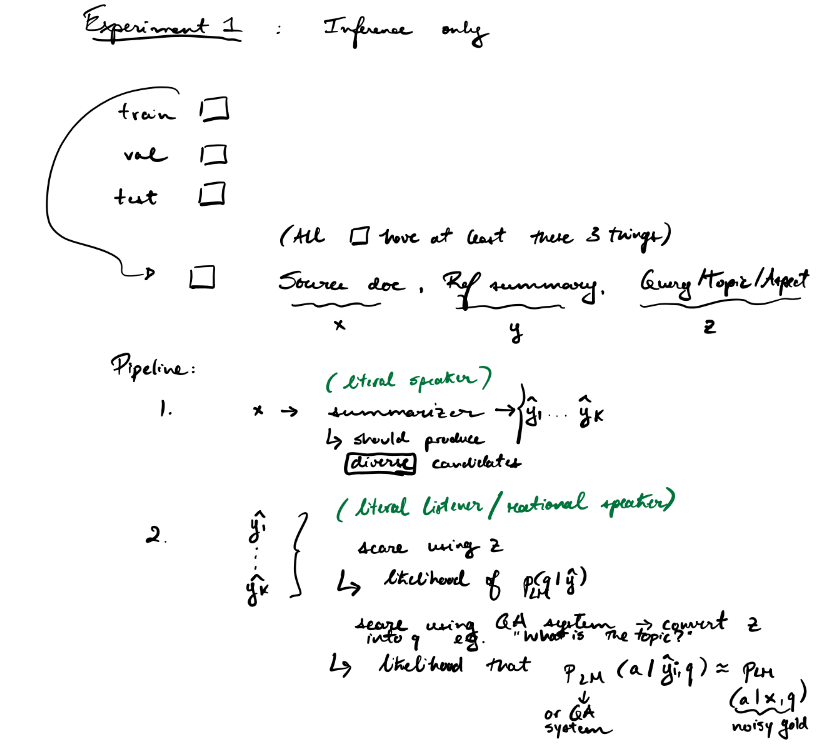 Experiment 1 : Inference only
train
val
test
(All □ have at least these 3 things)
Source doc, Ref summary, Query/Topic/Aspect
x y z
Pipeline:
(literal speaker)
1. x → summarizer → ŷ1 ... ŷK
↳ should produce
diverse candidates
(literal listener / rational speaker)
2. ŷ1 ... ŷK
score using z
↳ likelihood of pLM(q|ŷ)
score using QA system → convert z
into q eg. "What is the topic?"
↳ likelihood that pLM (a|ŷi,q) ≈ pLM
(a|x,q)
or QA
system
noisy gold